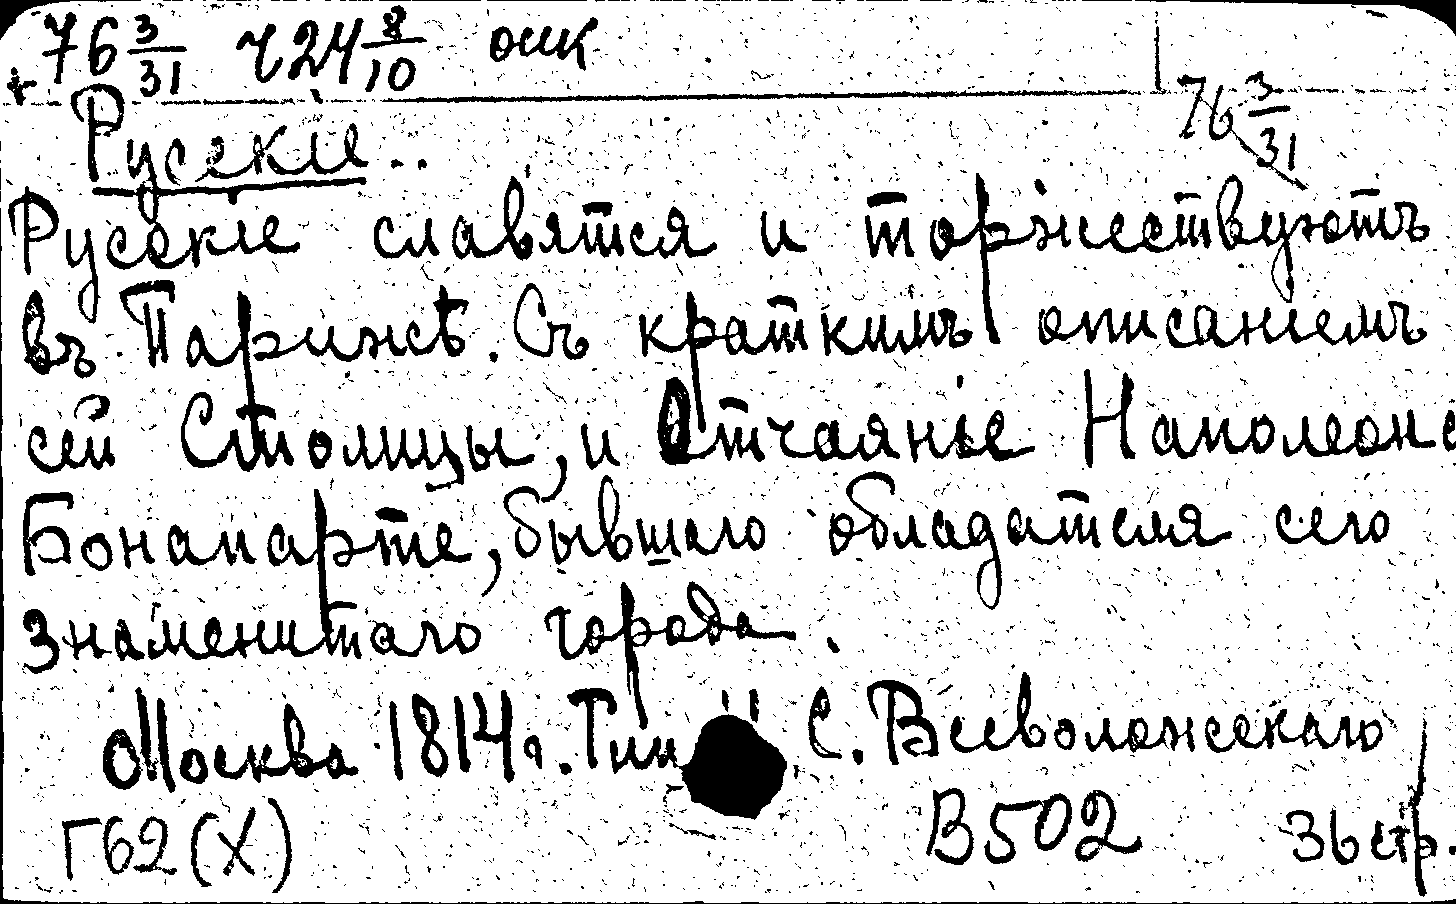 76 3/31 ч24 8/10
76 3/31
Русскіе..
Русскіе славятся и торжествуютъ
въ Парижѣ. Съ краткимъ описаніемъ
сей Столицы, и Отчаянье Наполеона
Бонапарте, бывшаго обладателя сего
знаменитаго города.
Москва 1814г. Тип С. Всеволожскаго
Г62(X) В502 36 стр.